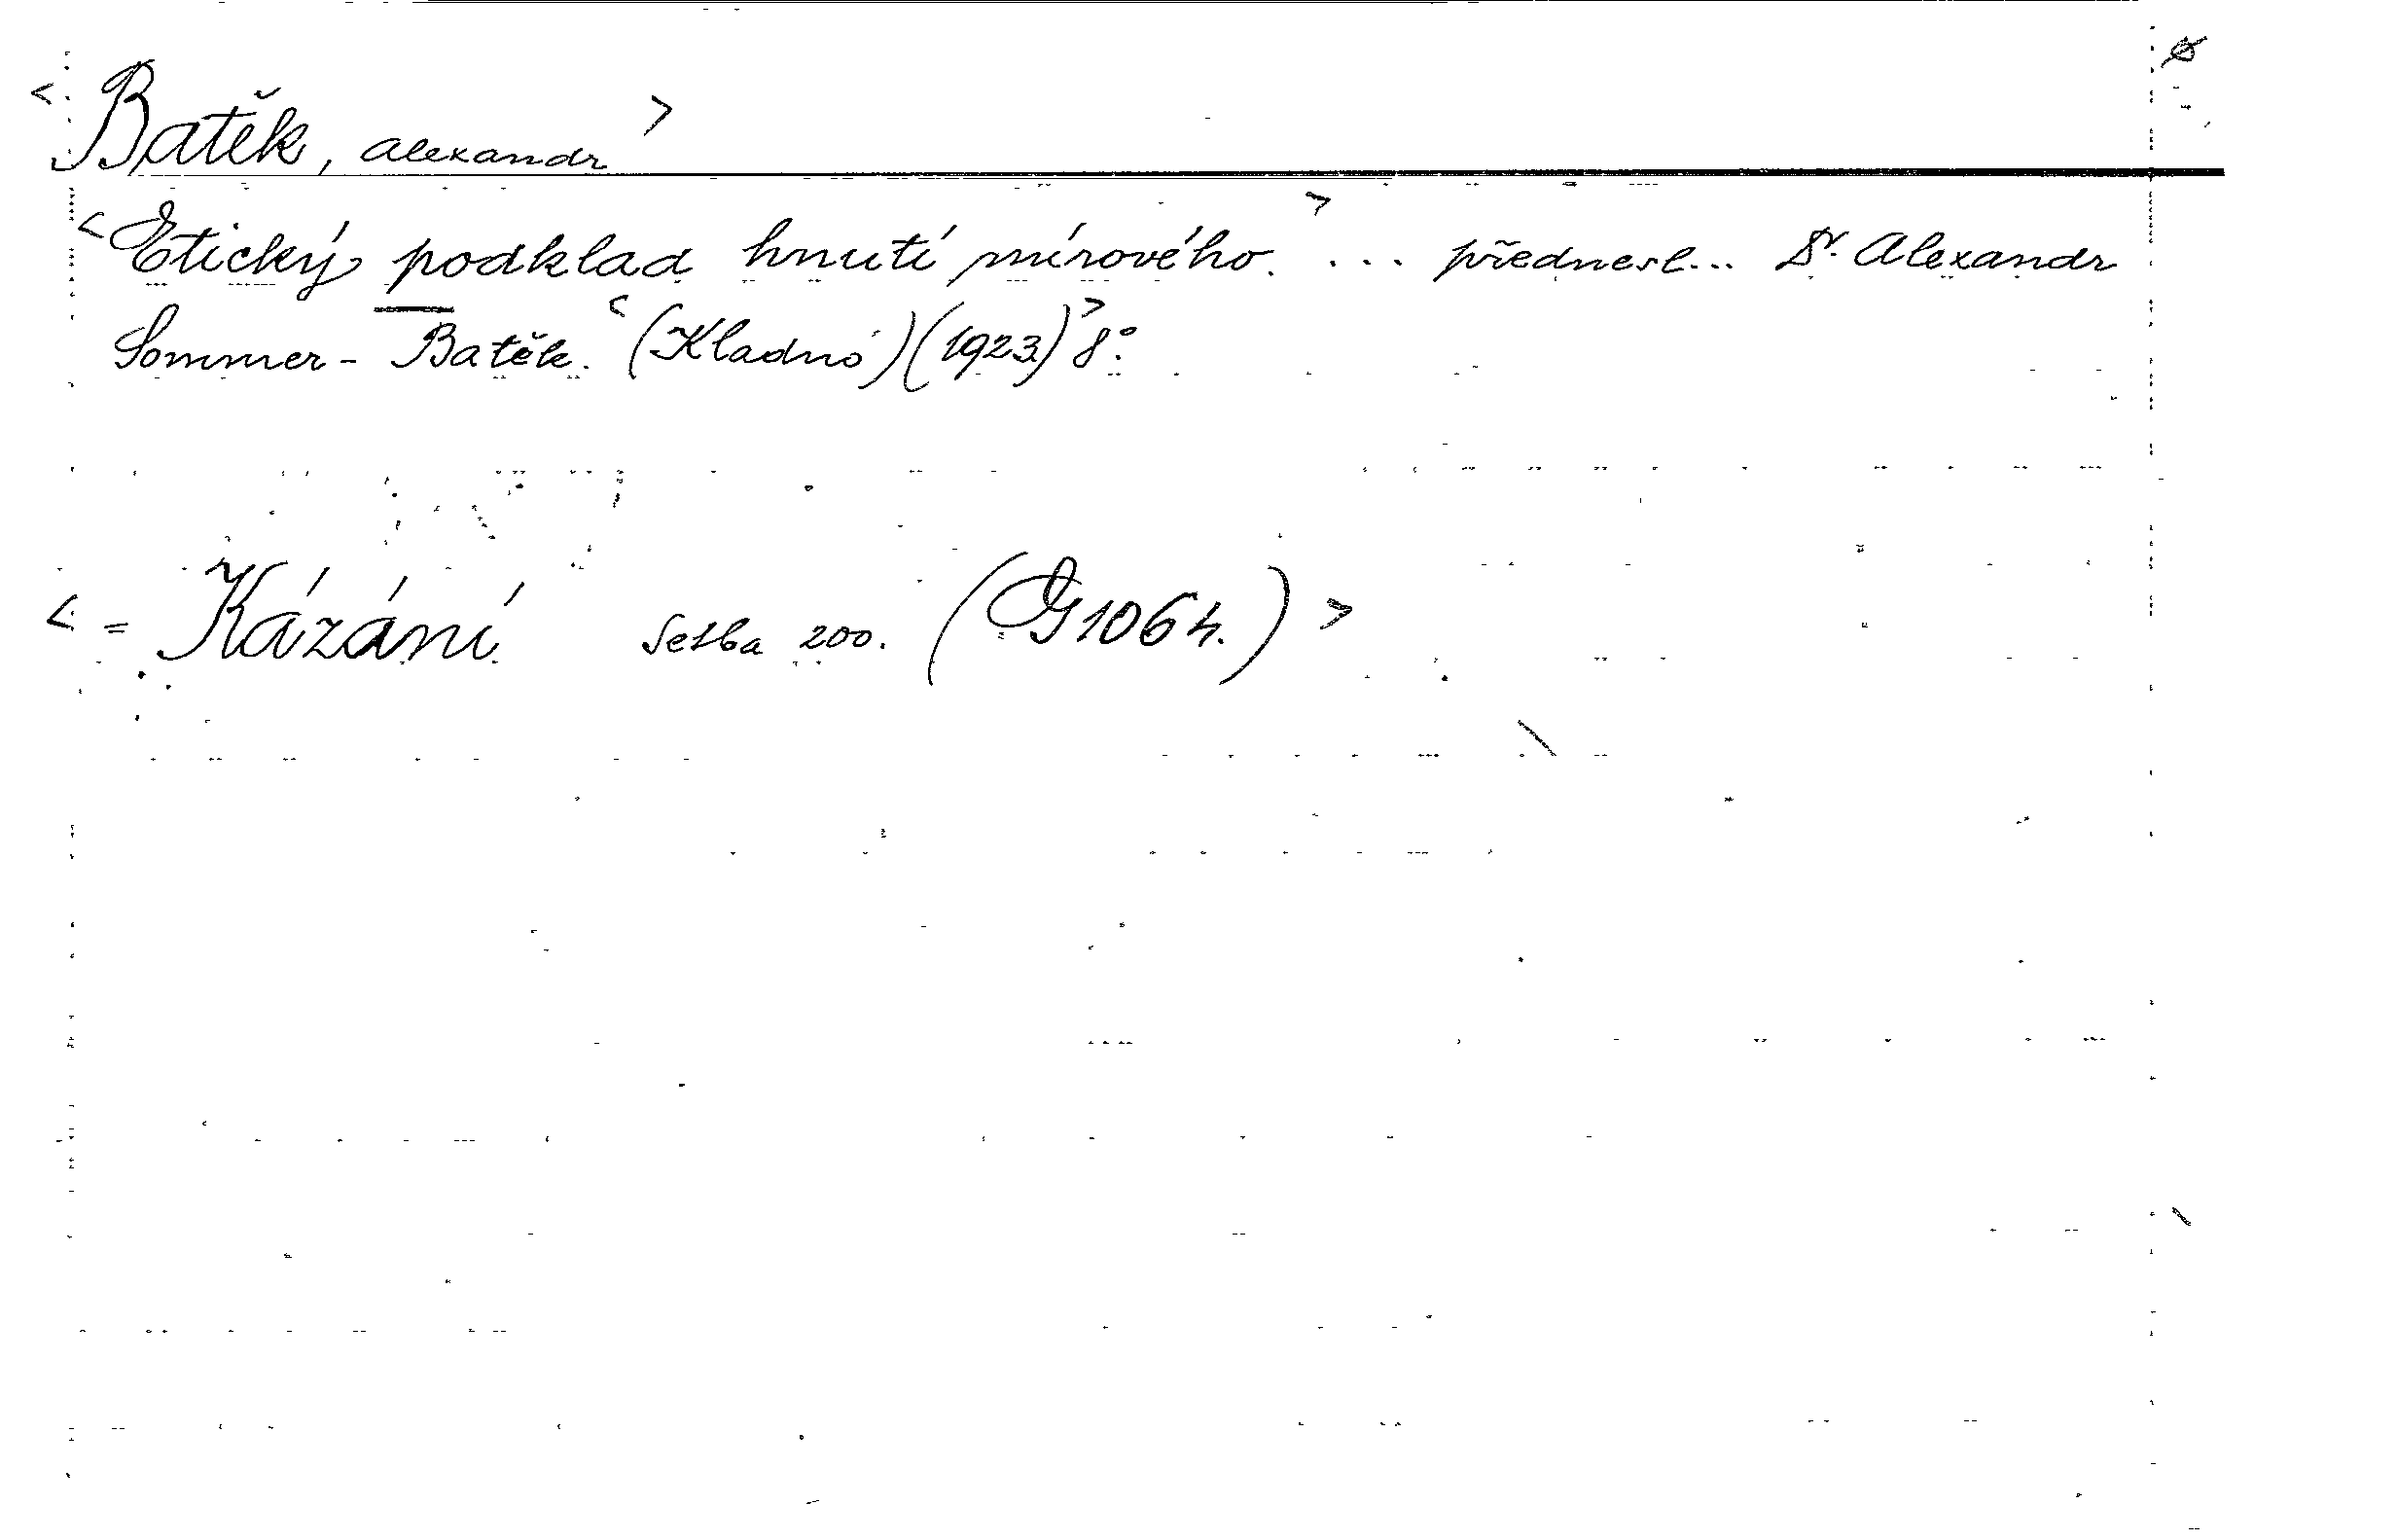 < Batěk, Alexandr >
< Etický podklad hnutí mírového. > ... přednesl... Dr. Alexandr
Sommer - Batěk. < (Kladno) (1923) > 8°.
< = Kázání Setba 200. (G 1064.) >